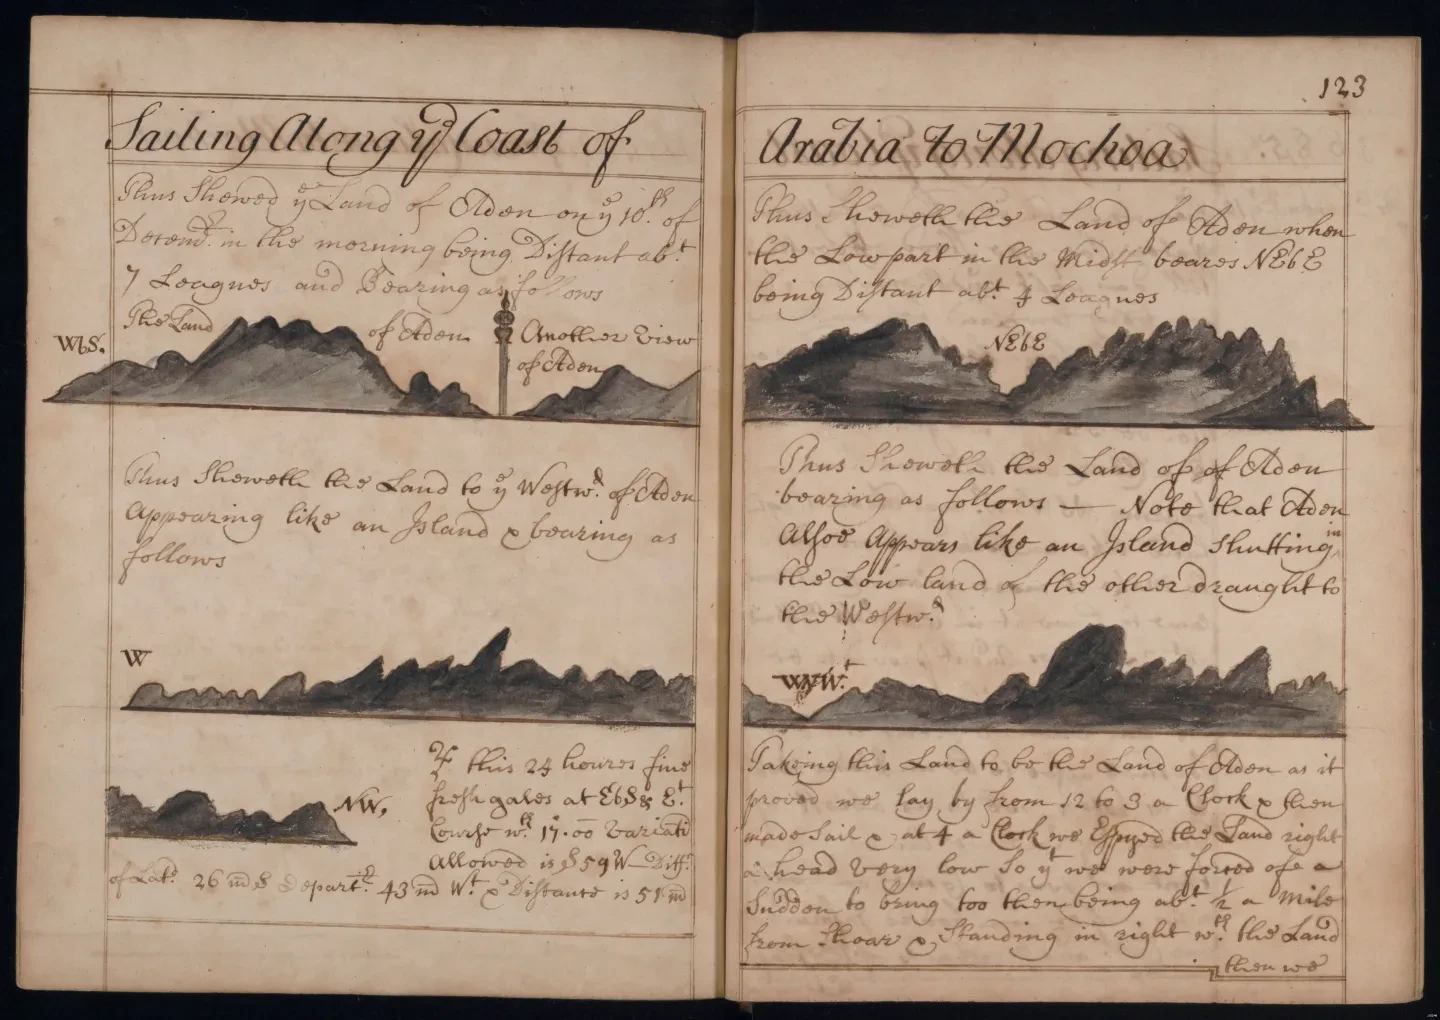 Sailing Along yᵉ Coast of
Thus Shewed yᵉ Land of Aden on yᵉ 10th. of
Decemᵇʳ. in the morning being Distant abᵗ.
7 Leagues and Bearing as follows
The Land of Aden
Another View
of Aden
WbS.
Thus Sheweth the Land to yᵉ Westwᵈ. of Aden
Appearing like an Island & bearing as
follows
W
NW,
this 24 houres fine
fresh gales at EbS & Eᵗ.
Course wᵗʰ. 17.00 Variati
Allowed is S 59 W Diffᵉ.
of Latᵈ. 26 m S Departᵗᵉ. 43 m Wᵗ. & Distance is 51 m
123
Arabia to Mochoa
Thus Sheweth the Land of Aden when
the Low part in the Midst beares NEbE
being Distant abᵗ. 4 Leagues
NEbE
Thus Sheweth the Land of of Aden
bearing as follows — Note that Aden
Alsoe Appears like an Island Shutting in
the Low land of the other draught to
the Westwᵈ.
WNWᵗ.
Takeing this Land to be the Land of Aden as it
proved we lay by from 12 to 3 a Clock & then
made Sail & at 4 a Clock we Espyed the Land right
a head very low So yᵗ we were forced of a
Sudden to bring too then being abᵗ. ½ a Mile
from Shoar & Standing in right wᵗʰ. the Land
then we